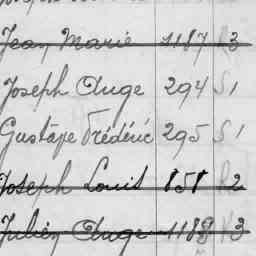 Jean Marie 1187 R3
Joseph Ange 294 S1
Gustave Frédéric 295 S1
Joseph Louis 851 R2
Julien Ange 1188 R3